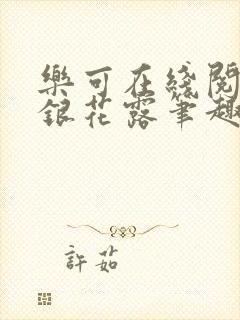 樂可在綫閱
銀花露筆趣
許茹